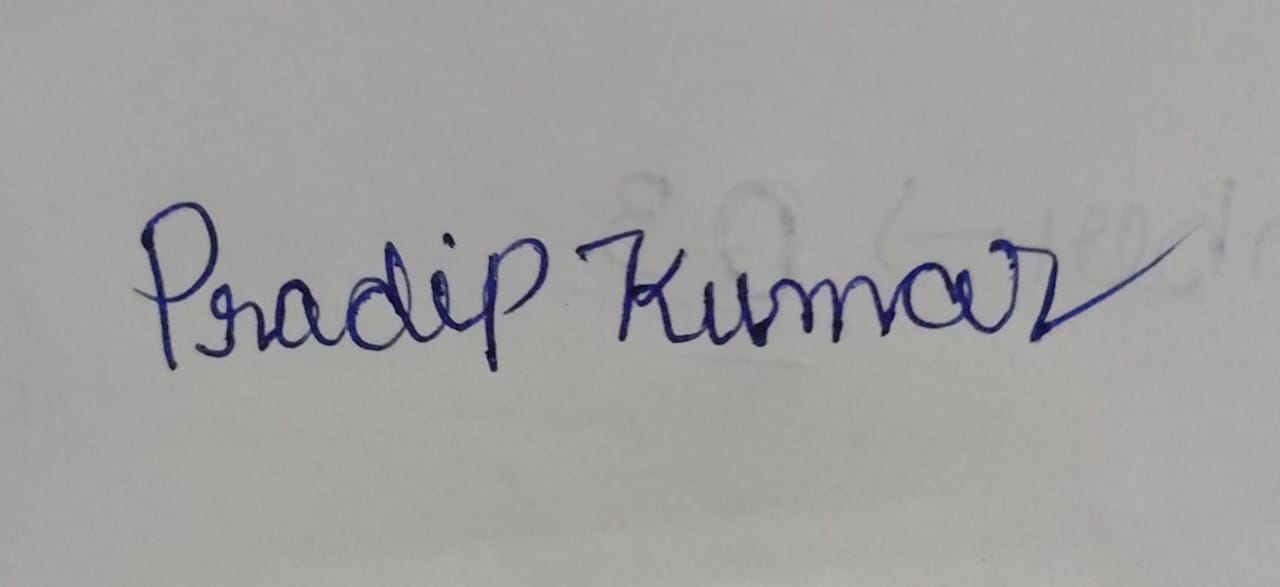 Pradip Kumar